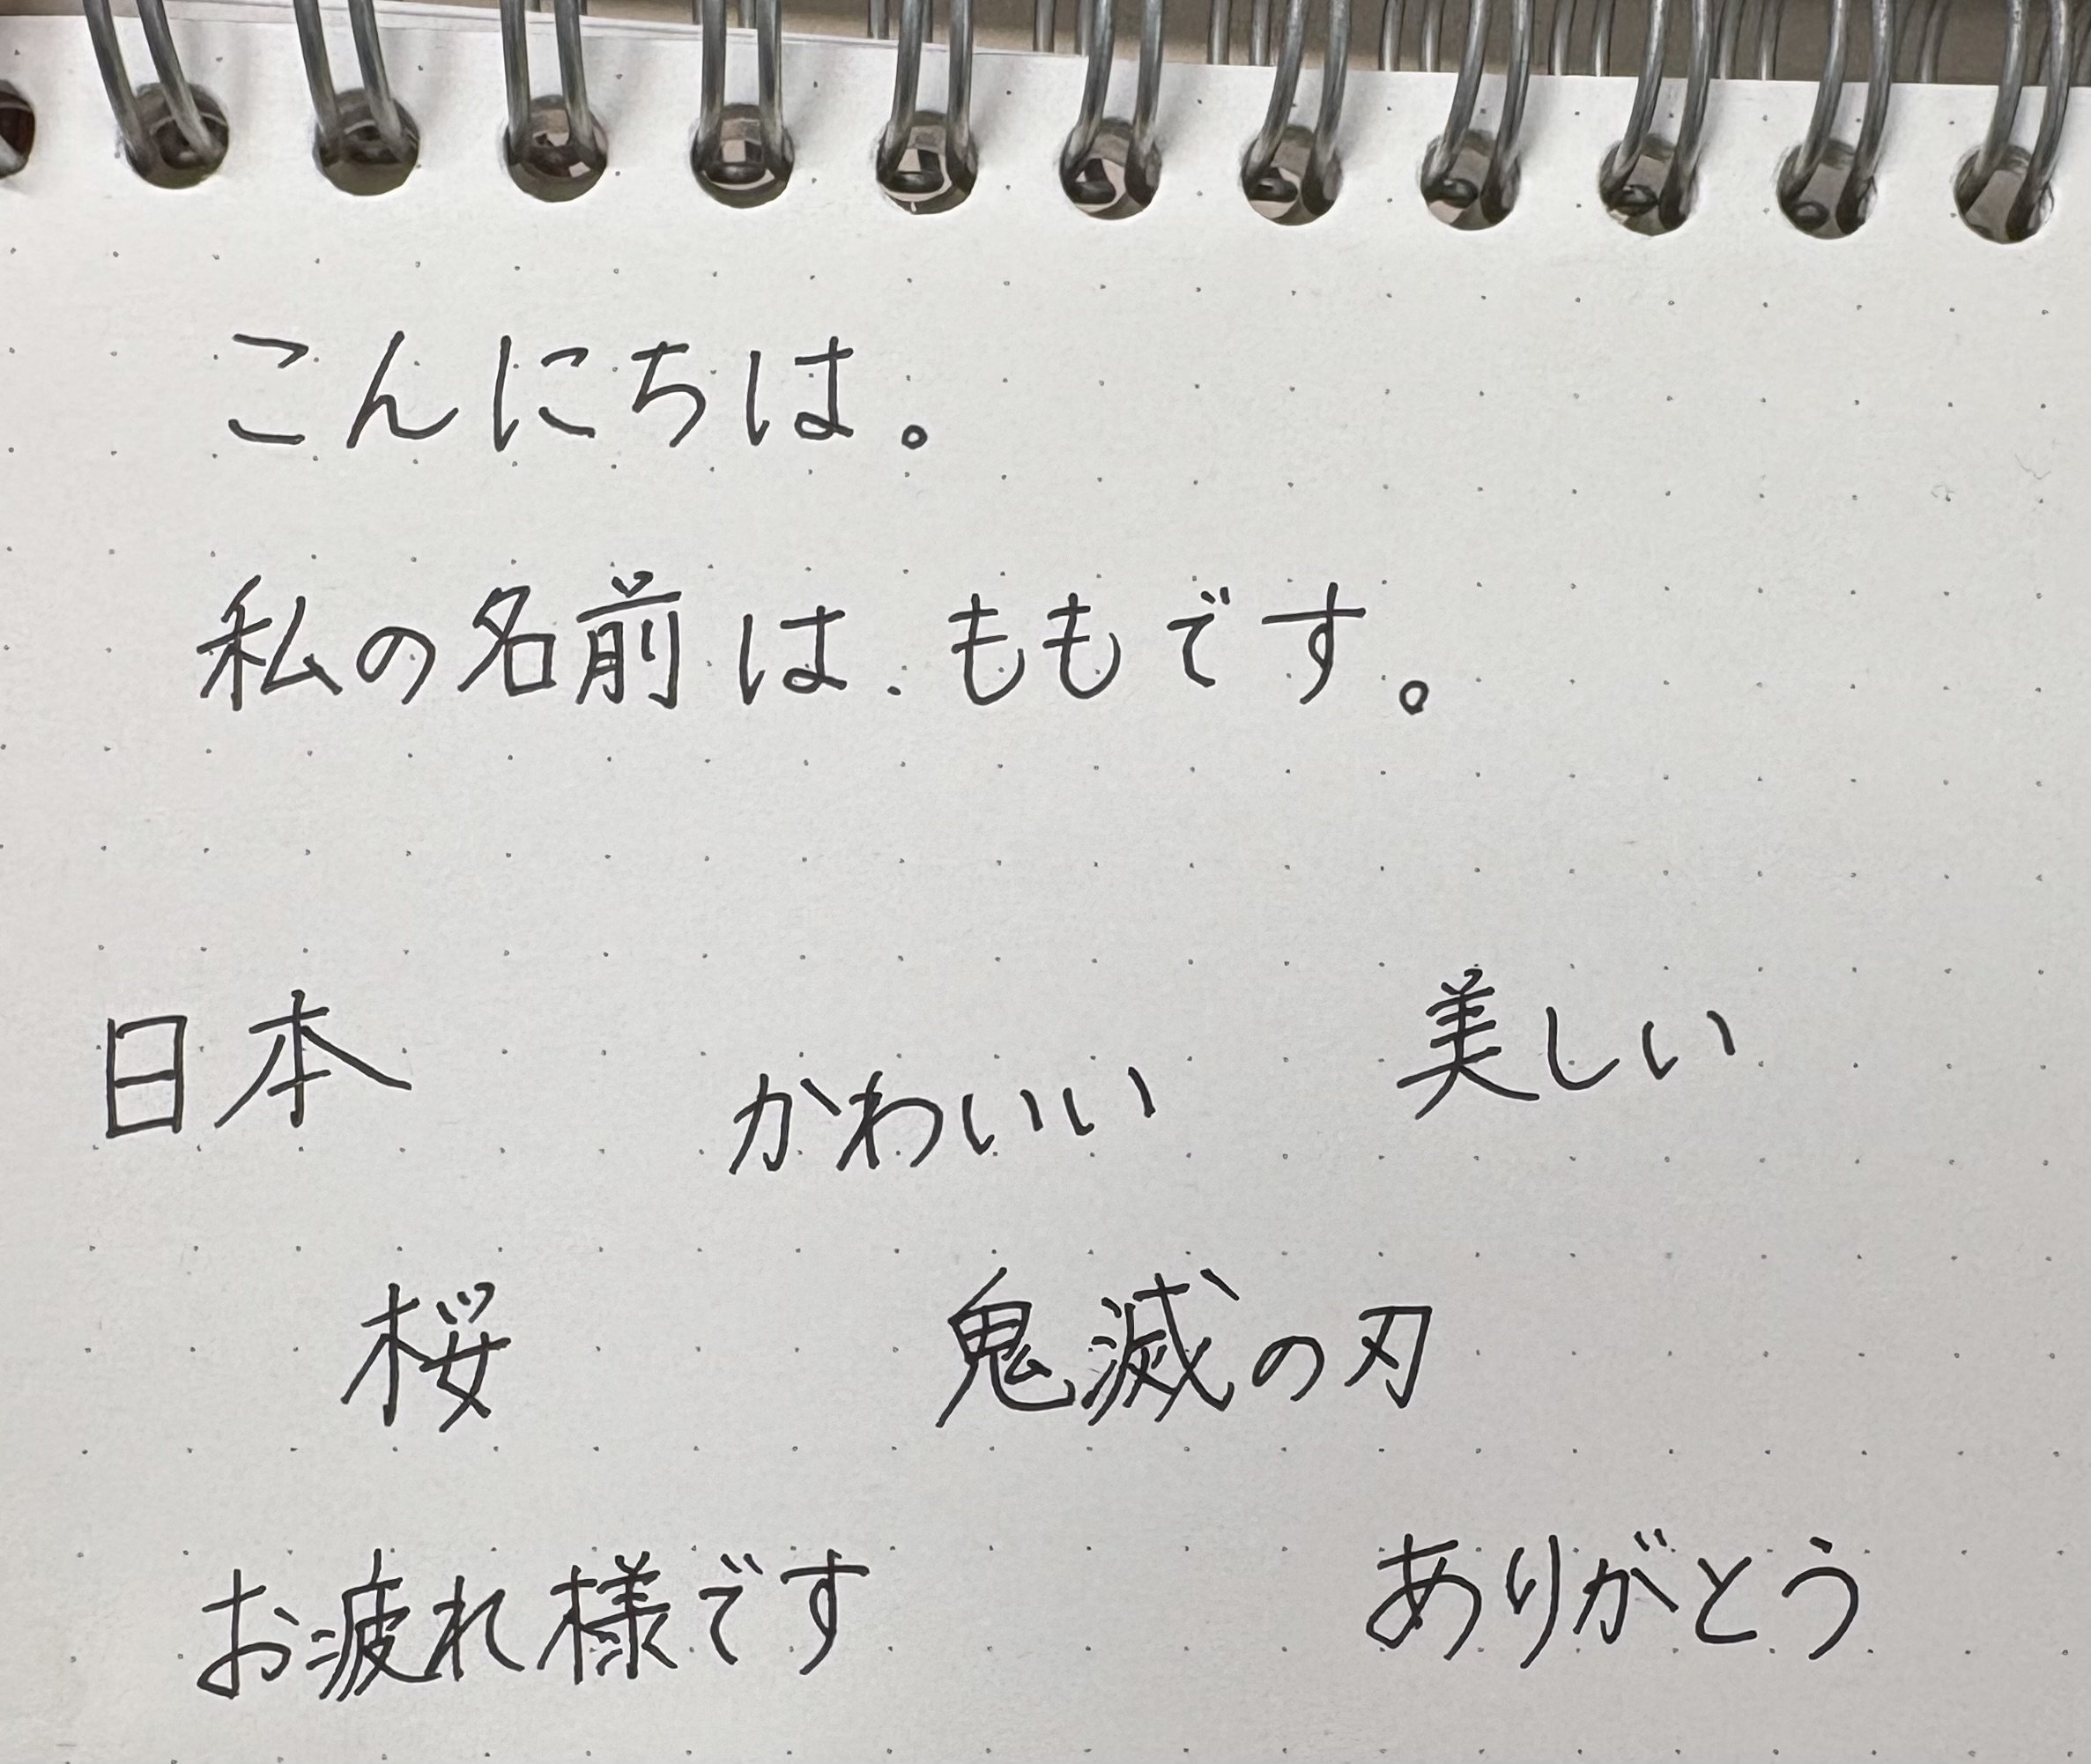 こんにちは。
私の名前は ももです。
日本 かわいい 美しい
桜 鬼滅の刃
お疲れ様です ありがとう